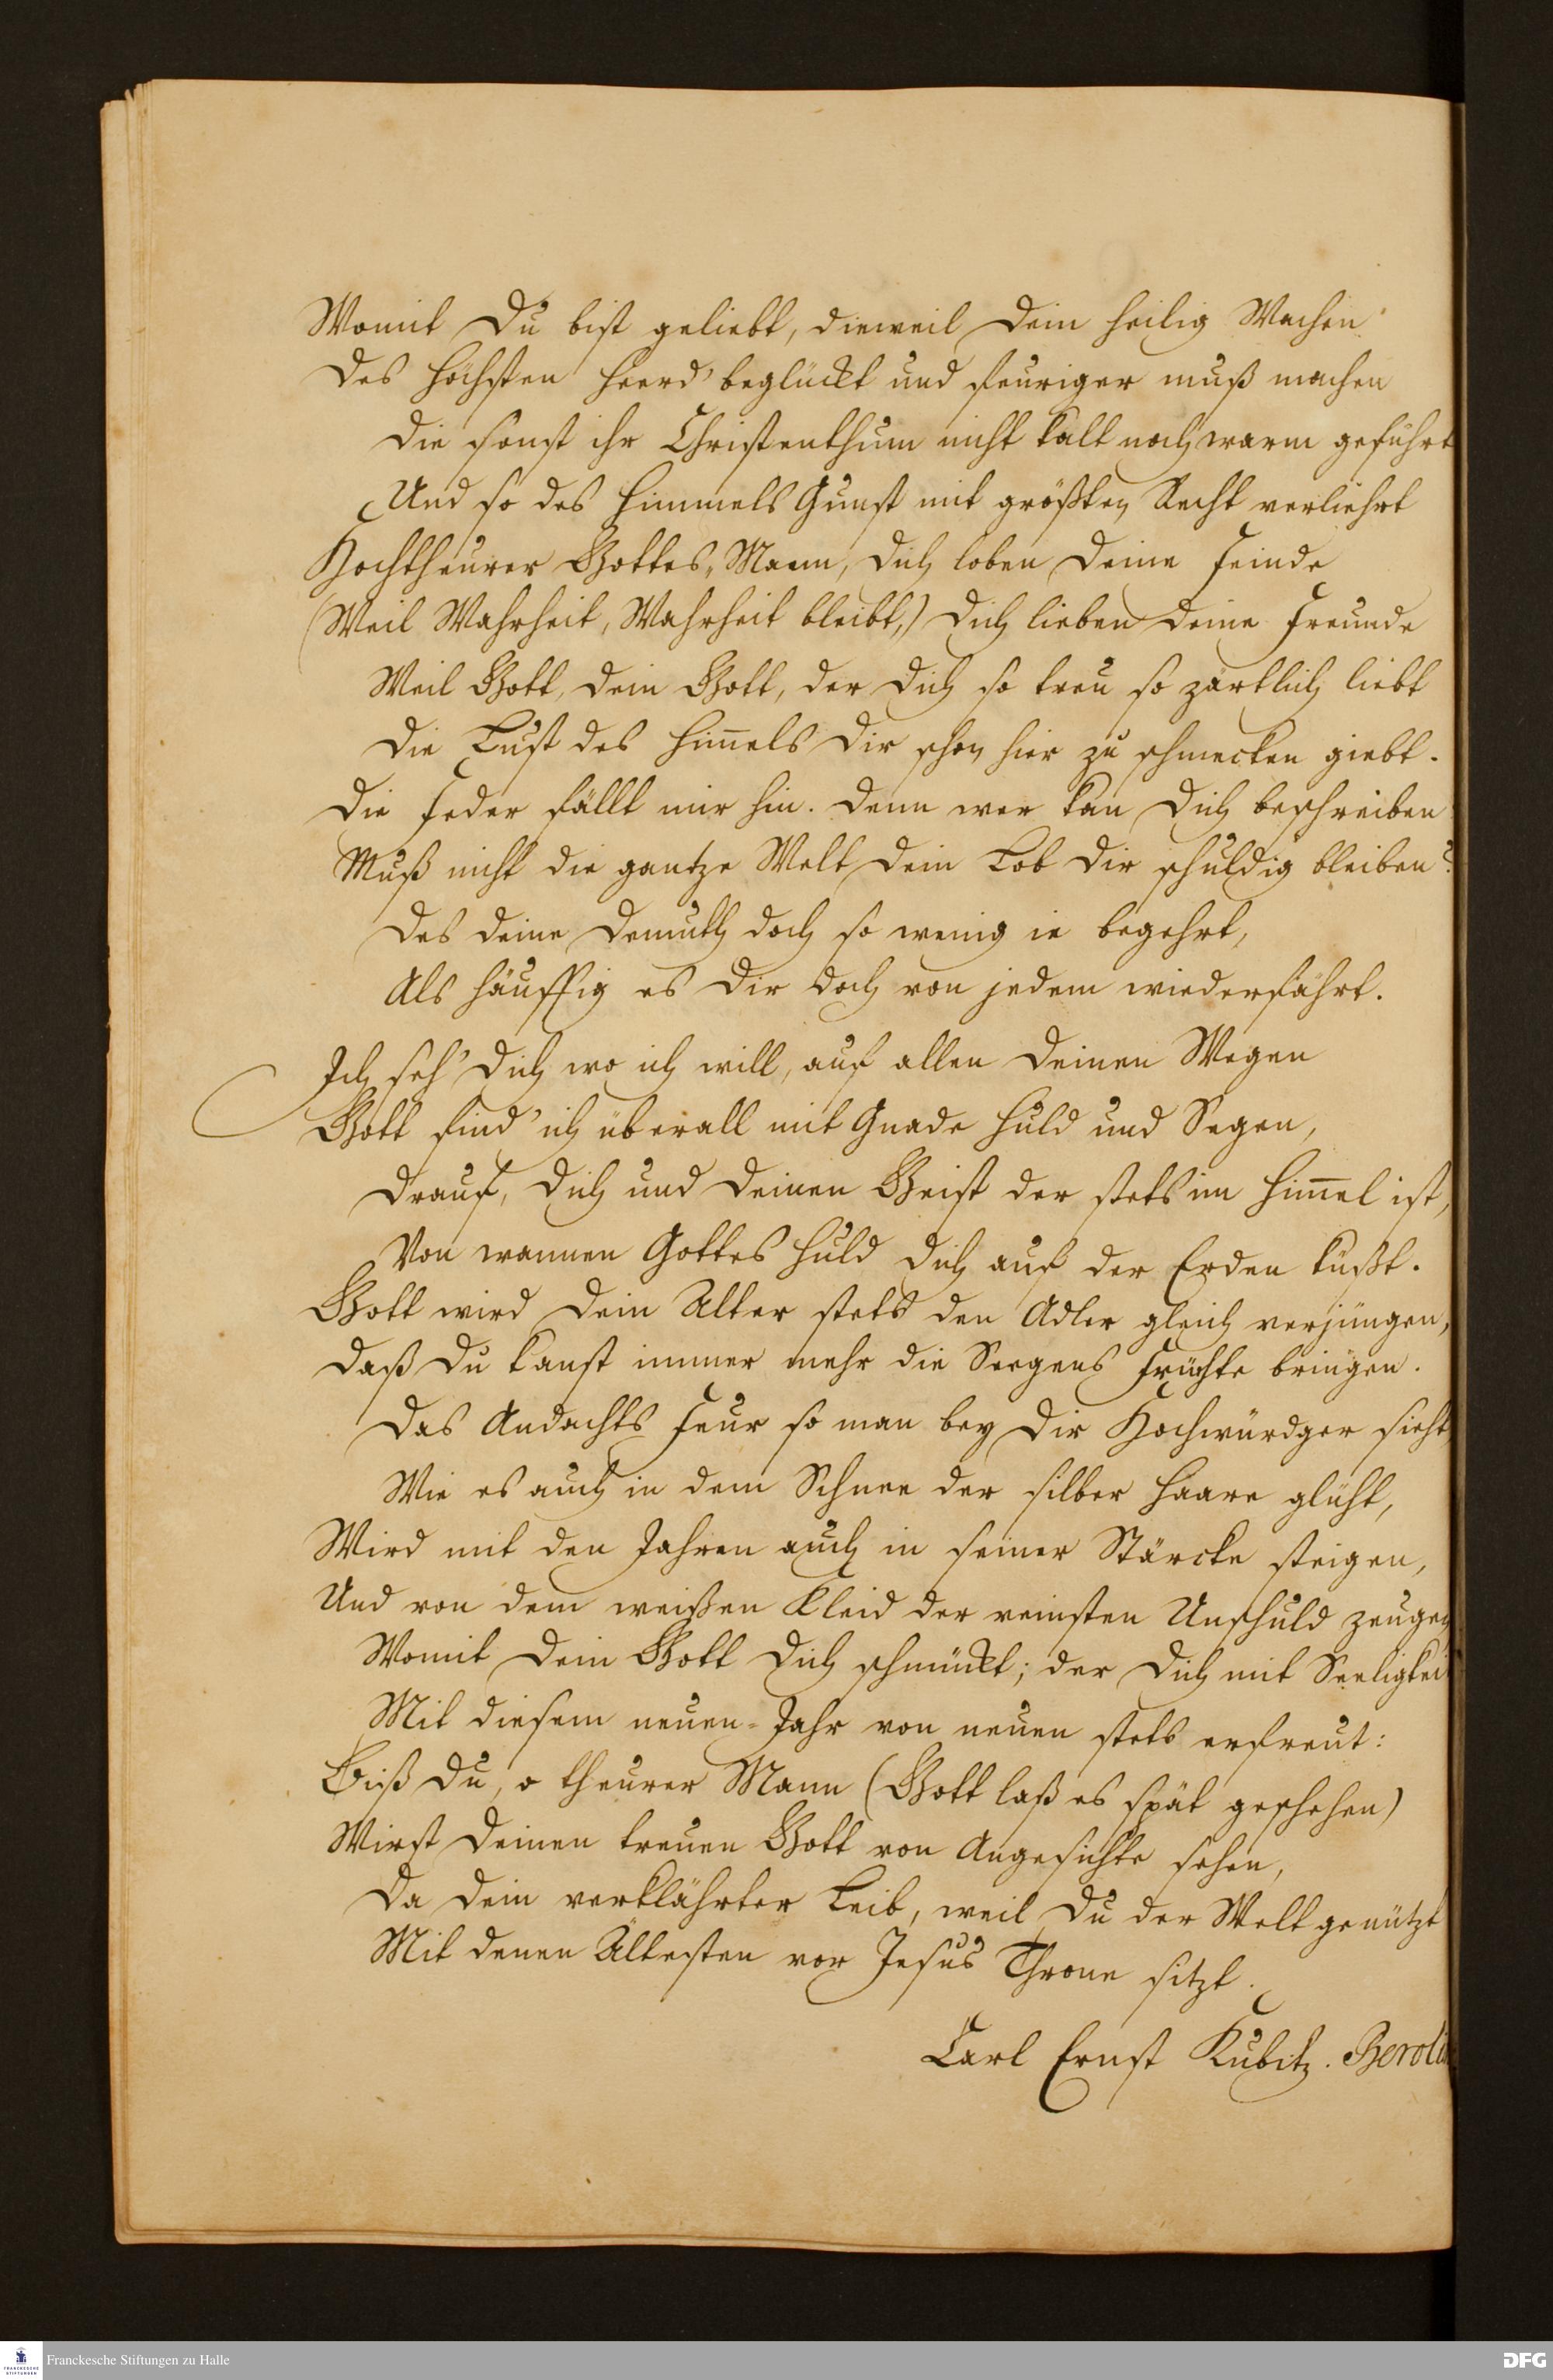 Womit Du bist geliebt, dieweil Dein heilig Wachen
Des Höchsten Heerd' beglückt und feuriger muß machen
Die sonst ihr Christenthum nicht kalt noch warm geführt
Und so des Himmels Gunst mit größten Recht verliehrt
Hochtheurer Gottes-Mann, Dich loben Deine Feinde
(Weil Wahrheit, Wahrheit bleibt,) Dich lieben Deine Freunde
Weil Gott, Dein Gott, der Dich so treu so zärtlich liebt
Die Lust des Him̄els Dir schon hier zu schmecken giebt.
Die Feder fällt mir hin. Denn wer kan Dich beschreiben
Muß nicht die gantze Welt Dein Lob Dir schuldig bleiben?
Des Deine Demuth doch so wenig ie begehrt,
Als häuffig es Dir doch von jedem wiederfährt.
Ich seh' Dich wo ich will, auf allen Deinen Wegen
Gott find' ich überall mit Gnade Huld und Segen,
Drauf, Dich und Deinen Geist der stets im Him̄el ist,
Von wannen Gottes Huld Dich auf der Erden küßt.
Gott wird Dein Alter stets den Adler gleich verjüngen,
Daß Du kanst immer mehr die Seegens Früchte bringen.
Das Andachts Feur so man bey Dir Hochwürdger sieht,
Wie es auch in dem Schnee der silber Haare glüht,
Wird mit den Jahren auch in seiner Stärcke steigen,
Und von dem weißen Kleid der reinsten Unschuld zeugen
Womit Dein Gott Dich schmückt; der Dich mit Seeligkeit
Mit diesem neuen-Jahr von neuen stets erfreut:
Biß Du, o theurer Mann (Gott laß es spät geschehen)
Wirst Deinen treuen Gott von Angesichte sehen,
Da Dein verklährter Leib, weil Du der Welt genützt
Mit denen Ältesten vor Jesus Throne sitzt.
Carl Ernst Kubitz. Berolin
Franckesche Stiftungen zu Halle
FRANCKESCHE
STIFTUNGEN
DFG